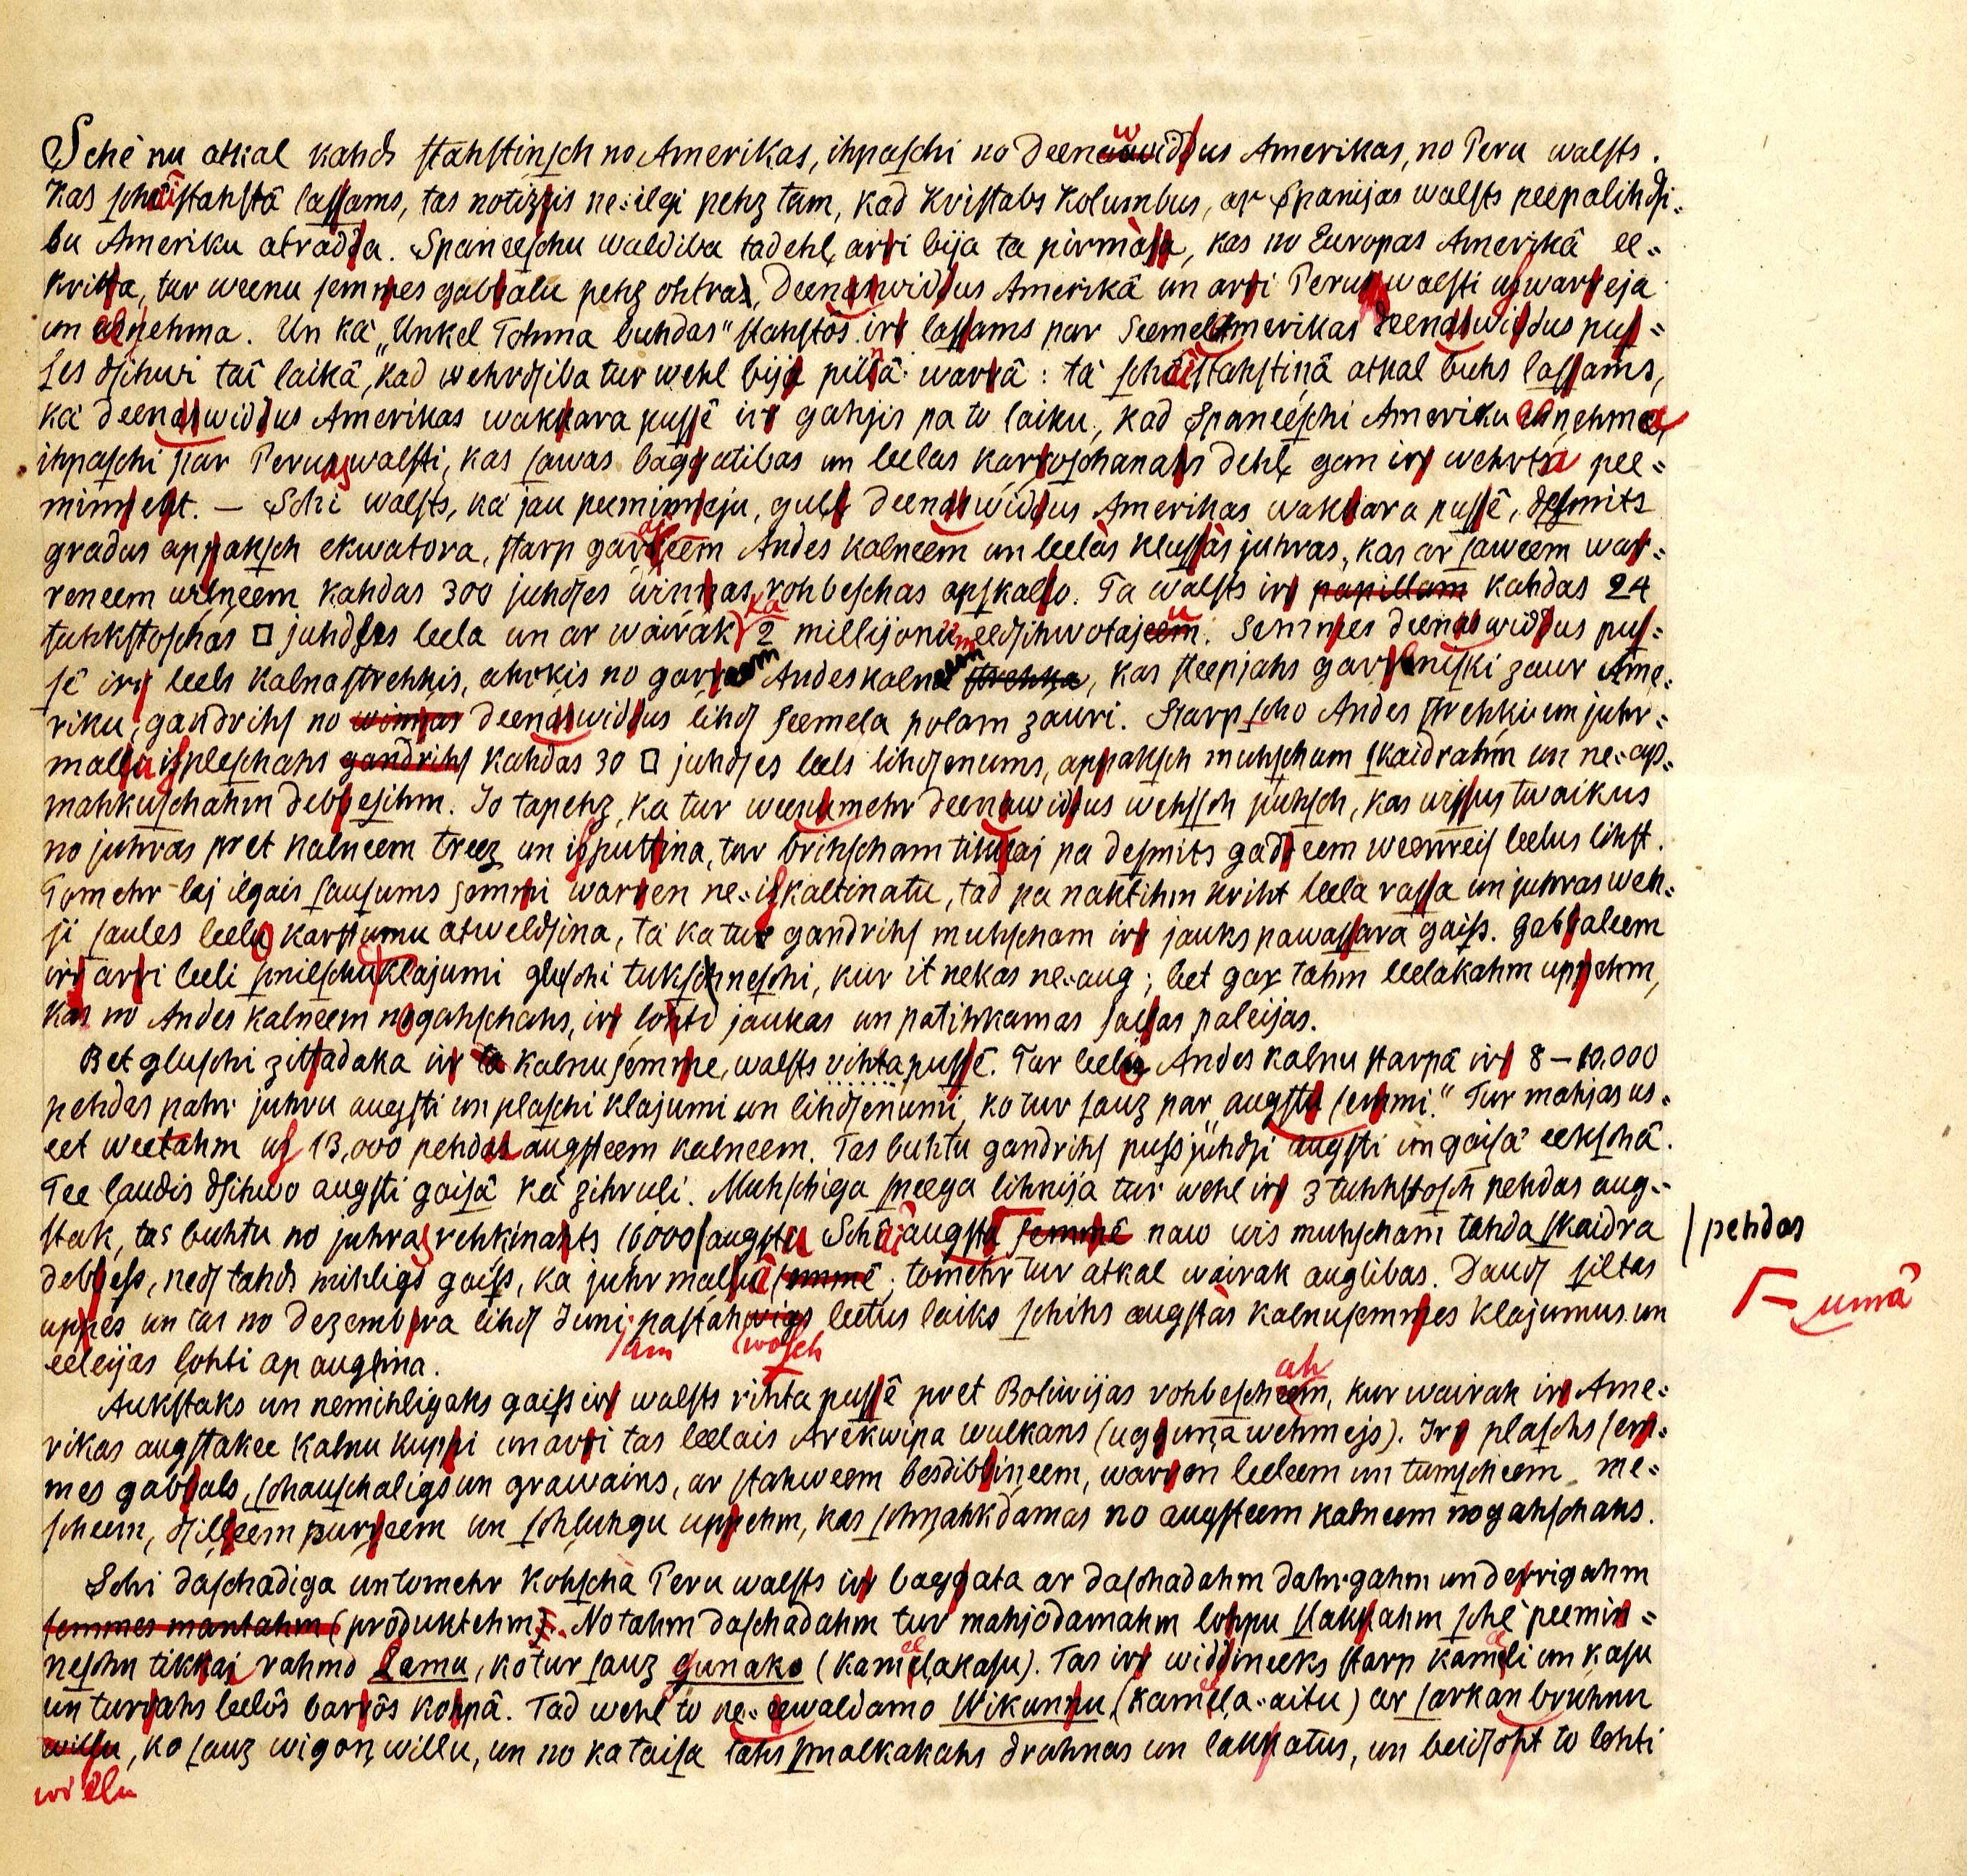 Sché nu atkal kahds stahstinsch no Amerikas, ihpaschi no Deenawiddus Amerikas, no Peru walsts.
Kas schâî stahstâ lassams, tas notizzis ne-ilgi pehz tam, kad Kristabs Kolumbus, ar Spanijas walsts peepalihdsi-
bu Ameriku atradda. Spaneeschu waldiba tadehļ arri bija ta pirmaja, kas no Europas Amerikâ ee-
kritta, tur weenu semmes gabbalu pehz ohtra, Deenaswiddus Amerikâ un arri Perus walsti uswarreja
un aisnehma. Un kà „Unkel Tohma buhdas" stahstôs irr lassams par Seemeļamerikas deenaswiddus pus-
ses dsihwi taî laikâ, kad wehrdsiba tur wehl bija pillâ warrâ: tà schâî stahstiņâ atkal buhs lassams,
kà deenaswiddus Amerikas wakkara pussê irr gahjis pa to laiku, kad Spaneeschi Ameriku aisnehma,
ihpaschi par Perus walsti, kas sawas baggatibas un leelas karroschanahs dehļ gan irr wehrts pee-
minneht. — Schi walsts, kà jau peeminneju, gull deenaswiddus Amerikas wakkara pussê, desmits
gradus appaksch ekwatora, starp garreem Andes kalneem un leelàs klussàs juhras, kas ar saweem war-
reneem wilņeem kahdas 300 juhdses winņas rohbeschas apskallo. Ta walsts irr papillam kahdas 24
tuhkstoschas □ juhdses leela un ar wairak kà 2 millijonu eedsihwotajeem. Semmes deenaswiddus pus-
sê irr leels kalnastrehķis, ahrkis no garreem Andes kalneem strehķa, kas steepjahs garreniski zaur Ame-
riku, gandrihs no winņas deenaswiddus lihds seemeļa polam zauri. Starp scho Andes strehķi un juhr-
mallu ispleschahs gandrihs kahdas 30 □ juhdses leels lihdsenums, appaksch muhscham skaidrahm un ne-ap-
mahkuschahm debbesihm. Jo tapehz, ka tur weenumehr deenawiddus wehjsch puhsch, kas wissus twaikus
no juhras pret kalneem treez un isputtina, tur brihscham tikkai pa desmits gaddeem weenreis leetus lihst.
Tomehr lai ilgais sausums semmi warren ne-iskaltinatu, tad pa naktihm kriht leela rassa un juhras weh-
ji saules leelo karstumu atweldsina, tà ka tur gandrihs muhscham irr jauks pawassara gaiss. Gabbaleem
irr arri leeli smilschuklajumi gluschi tukschneschi, kur it nekas ne-aug; bet gar tahm leelakahm uppehm,
kas no Andes kalneem nogahschahs, irr lohti jaukas un patihkamas saļļas paleijas.
Bet gluschi zittadaka irr ta kalnu semme, walsts rihta pussê. Tur leelo Andes kalnu starpâ irr 8 – 10.000
pehdas pahr juhru augsti un plaschi klajumi un lihdsenumi, ko tur sauz par „augstu semmi." Tur mahjas us-
eet weetahm us 13,000 pehdas augsteem kalneem. Tas buhtu gandrihs pussjuhdsi augsti un gaisâ eekschâ.
Tee laudis dsihwo augsti gaisâ kà zihruli. Muhschiga sneega lihnija tur wehl irr 3 tuhkstosch pehdas aug-
stak, tas buhtu no juhras rehkinahts 16000 | augstu Schâî augstâ semmê naw wis muhscham tahda skaidra
debbess, neds tahds mihligs gaiss, kà juhrmallâ semmê, tomehr tur atkal wairak auglibas. Daudz siltas
uppes un tas no Dezembra lihds Juni pastahwigs leetus laiks schihs augstàs kalnu semmes klajumus un
eeleijas lohti ap auglina.
Aukstaks un nemihligaks gaiss irr walsts rihta pussê pret Boliwijas rohbescheem, kur wairak irr Ame-
rikas augstakee kalnu kuppi un arri tas leelais Arekwipa wulkans (ugguņa wehmejs). Irr plaschs sem-
mes gabbals, schauschaligs un grawains, ar stahweem besdibbineem, warren leeleem un tumscheem me-
scheem, dsilleem purreem un schluhgu uppehm, kas schņahkdamas no augsteem kalneem nogahschahs.
Schi daschadiga un tomehr kohscha Peru walsts irr baggata ar daschadahm dahrgahm un derrigahm
semmes mantahm (produktehm). No tahm daschadahm tur mahjodamahm lohpu sļakkahm schê peemin-
neschu tikkai rahmo Lamu, ko tur sauz gunako (kameeļakasu). Tas irr widdineeks starp kameeli un kasu
un turrahs leelôs barrôs kohpâ. Tad wehl to ne-eewaldamo Wikunnu (kameeļa-aitu) ar sarkan bruhnu
willu, ko sauz wigoņ willu, un no ka taisa tahs smalkakahs drahnas un lakkatus, un beidsoht to lohti
| pehdas
umâ
am
wosch
ah
willu